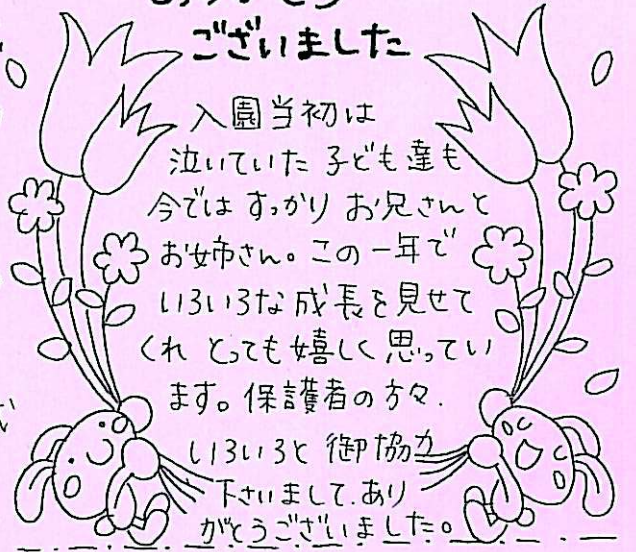 ございました
入園当初は
泣いていた 子ども達も
今では すっかり お兄さんと
お姉さん。この一年で
いろいろな 成長を見せて
くれ とっても 嬉しく 思ってい
ます。保護者の方々.
いろいろと 御協力
下さいまして.あり
がとうございました。